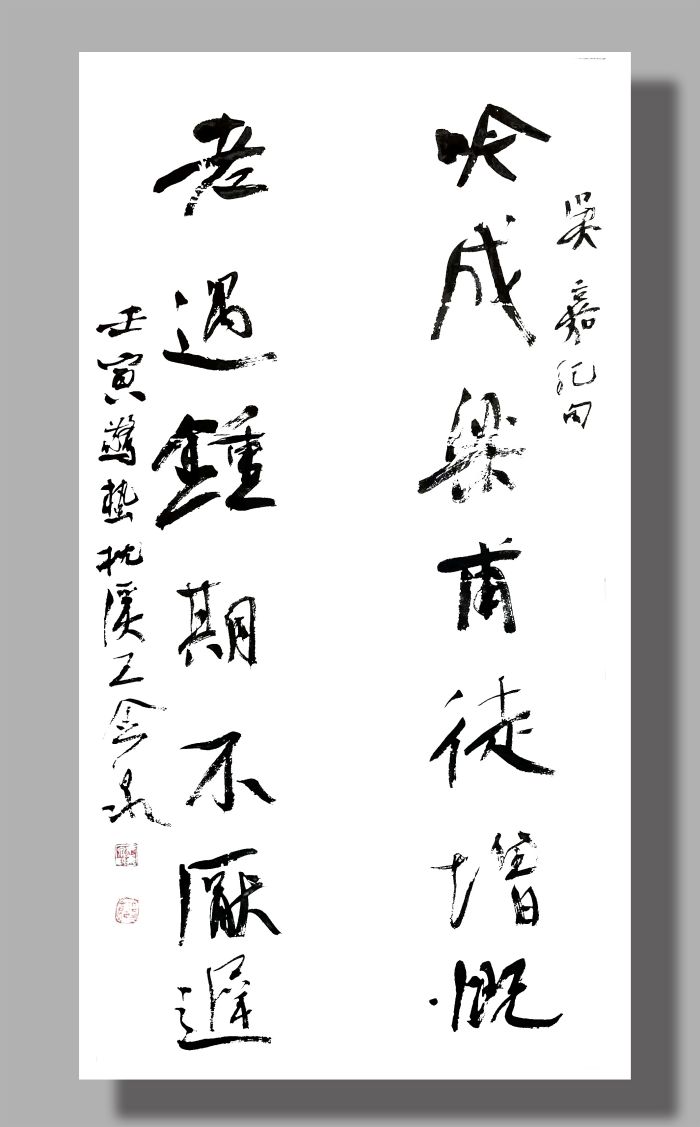 吴嘉纪句
吟成梁甫徒增慨
老遇鍾期不厭遲
壬寅驚蟄枕溪王金泉